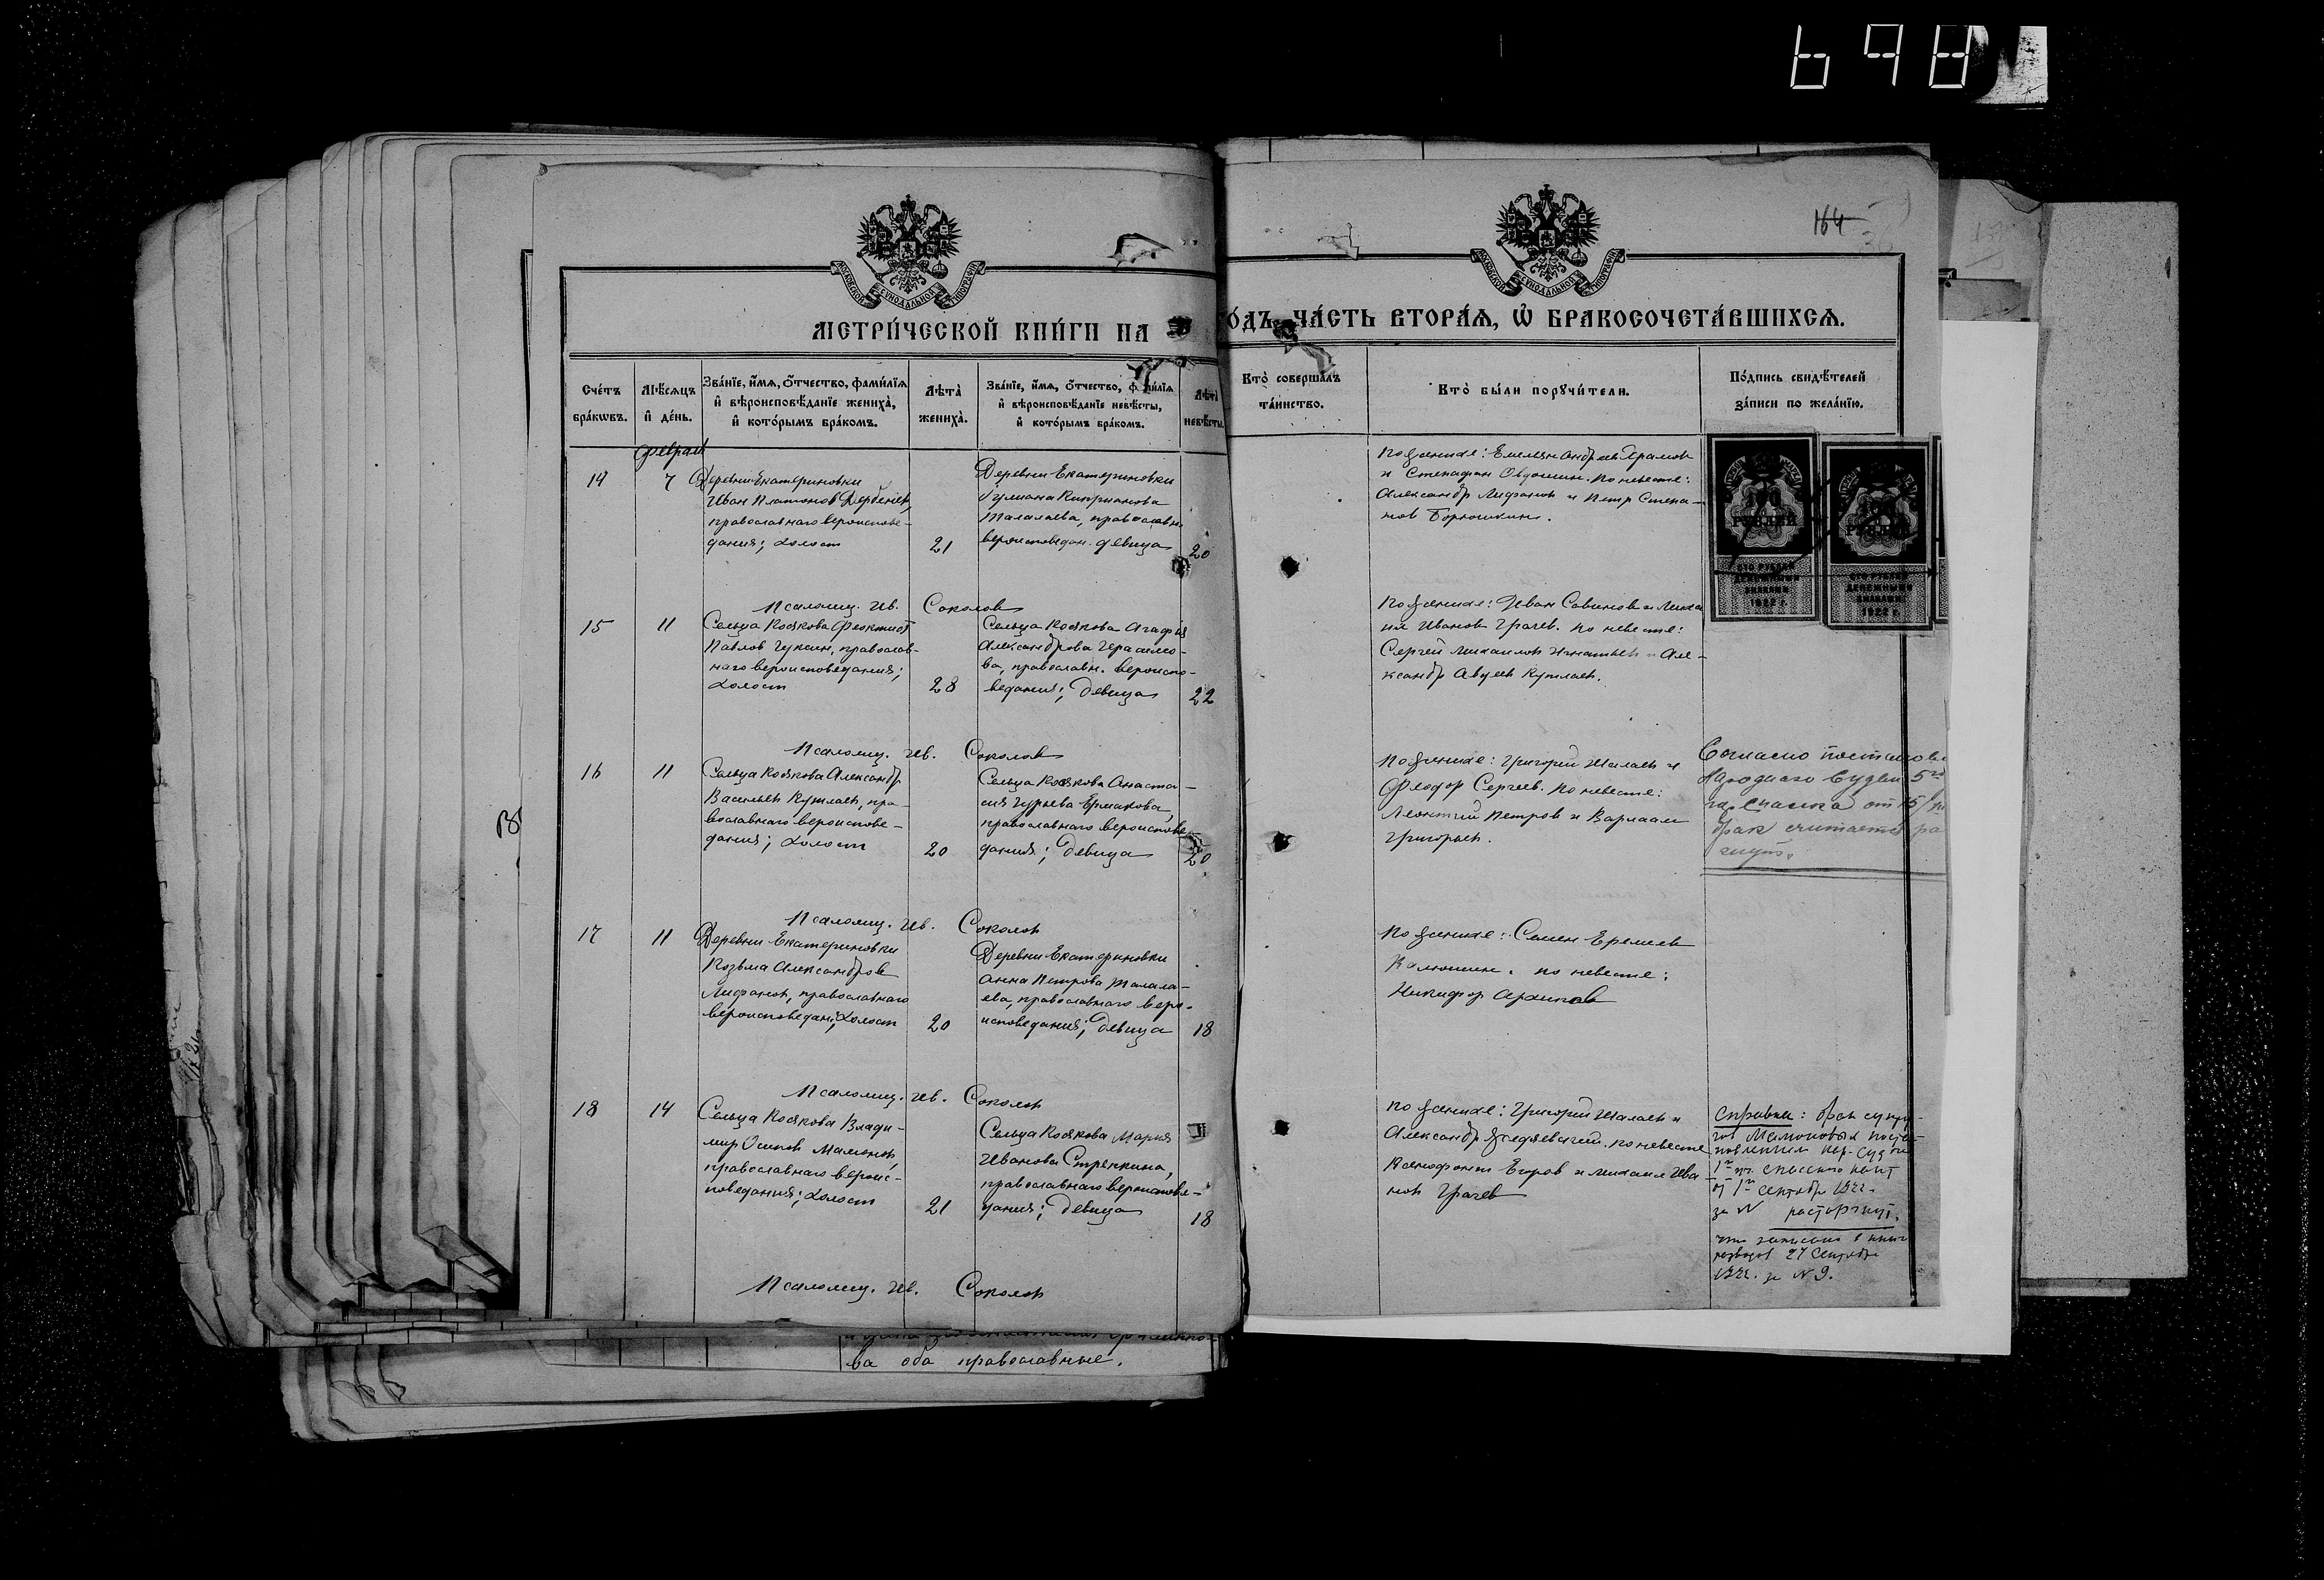 698
164
МОСКОВСКОЙ СѴНОДАЛЬНОЙ ТИПОГРАФІИ
МОСКОВСКОЙ СѴНОДАЛЬНОЙ ТИПОГРАФІИ
МЕТРИ́ЧЕСКОЙ КНИ́ГИ НА
ГО́ДЪ, ЧА́СТЬ ВТОРА́Я, Ѿ БРАКОСОЧЕТА́ВШИХСЯ.
Сче́тъ
бра́кѡвъ.
Мѣ́сяцъ
и҆ де́нь.
Зва́нїе, и҆́мя, ѻ҆́тчество, фами́лїя
и҆ вѣроисповѣ́данїе жениха̀,
и҆ кото́рымъ бра́комъ.
Лѣта̀
жениха̀.
Зва́нїе, и҆́мя, ѻ҆́тчество, фами́лїя
и҆ вѣроисповѣ́данїе невѣ́сты,
и҆ кото́рымъ бра́комъ.
Лѣта̀
невѣ́сты.
Кто̀ соверша́лъ
та́инство.
Кто̀ бы́ли порꙋчи́тели.
По́дпись свидѣ́телей
за́писи по жела́нїю.
феврал
14
7
Деревни Екатериновки
Иван Платонов Дербенев,
православнаго вероиспове-
дания; холост
21
Деревни Екатериновки
Улиана Киприанова
Талалаева, православн.
вероисповедан. девица
20
По женихе: Емельян Андреев Храмов
и Стефан Овдошин. По невесте:
Александр Лифанов и Петр Степа-
нов Борюшкин.
РУБЛЕЙ
1922 г.
РУБЛЕЙ
1922 г.
Псаломщ. Ив. Соколов
15
11
Сельца Косякова Феоктист
Павлов Гуксин, православ-
наго вероисповедания;
холост
28
Сельца Косякова Агафья
Александрова Герасимо-
ва, православн. вероиспо-
ведания; девица
22
По женихе: Иван Савинов и Миха
ил Иванов Грачев. По невесте:
Сергей Михаилов Игнатьев и Але-
ксандр Авдеев Куплаев.
Псаломщ. Ив. Соколов
16
11
Сельца Косякова Александр
Васильев Куплаев, пра-
вославнаго вероиспове-
дания; холост
20
Сельца Косякова Анаста-
сия Гурьева Ермакова,
православнаго вероиспове-
дания; девица
20
По женихе: Григорий Шалаев и
Феодор Сергеев. По невесте:
Леонтий Петров и Варлаам
Григорьев.
Согласно постановл
Народнаго Судьи 5го
Спасска от 15/
брак считается ра
Псаломщ. Ив. Соколов
17
11
Деревни Екатериновки
Козьма Александров
Лифанов, православнаго
вероисповедан; холост
20
Деревни Екатериновки
Анна Петрова Талала-
ева, православнаго веро-
исповедания; девица
18
По женихе: Семен Еремеев
Калюшин. По невесте:
Никифор Архипов
Псаломщ. Ив. Соколов
18
14
Сельца Косякова Влади-
мир Осипов Мамонов,
православнаго вероис-
поведания; холост
21
Сельца Косякова Мария
Иванова Стрепкина,
православнаго вероиспове-
дания; девица
18
По женихе: Григорий Шалаев и
Александр По невесте
Ксенофонт Егоров и Михаил Ива
нов Грачев
Справка: брак супру-
гов Мамоновых поста-
новлением нар. суда
1го уч. Спасского
от 1го сентября 1922
за № расторгнут,
что записано в книге
разводов 27 Сентября
1922. за № 9.
Псаломщ. Ив. Соколов
ва оба православные.